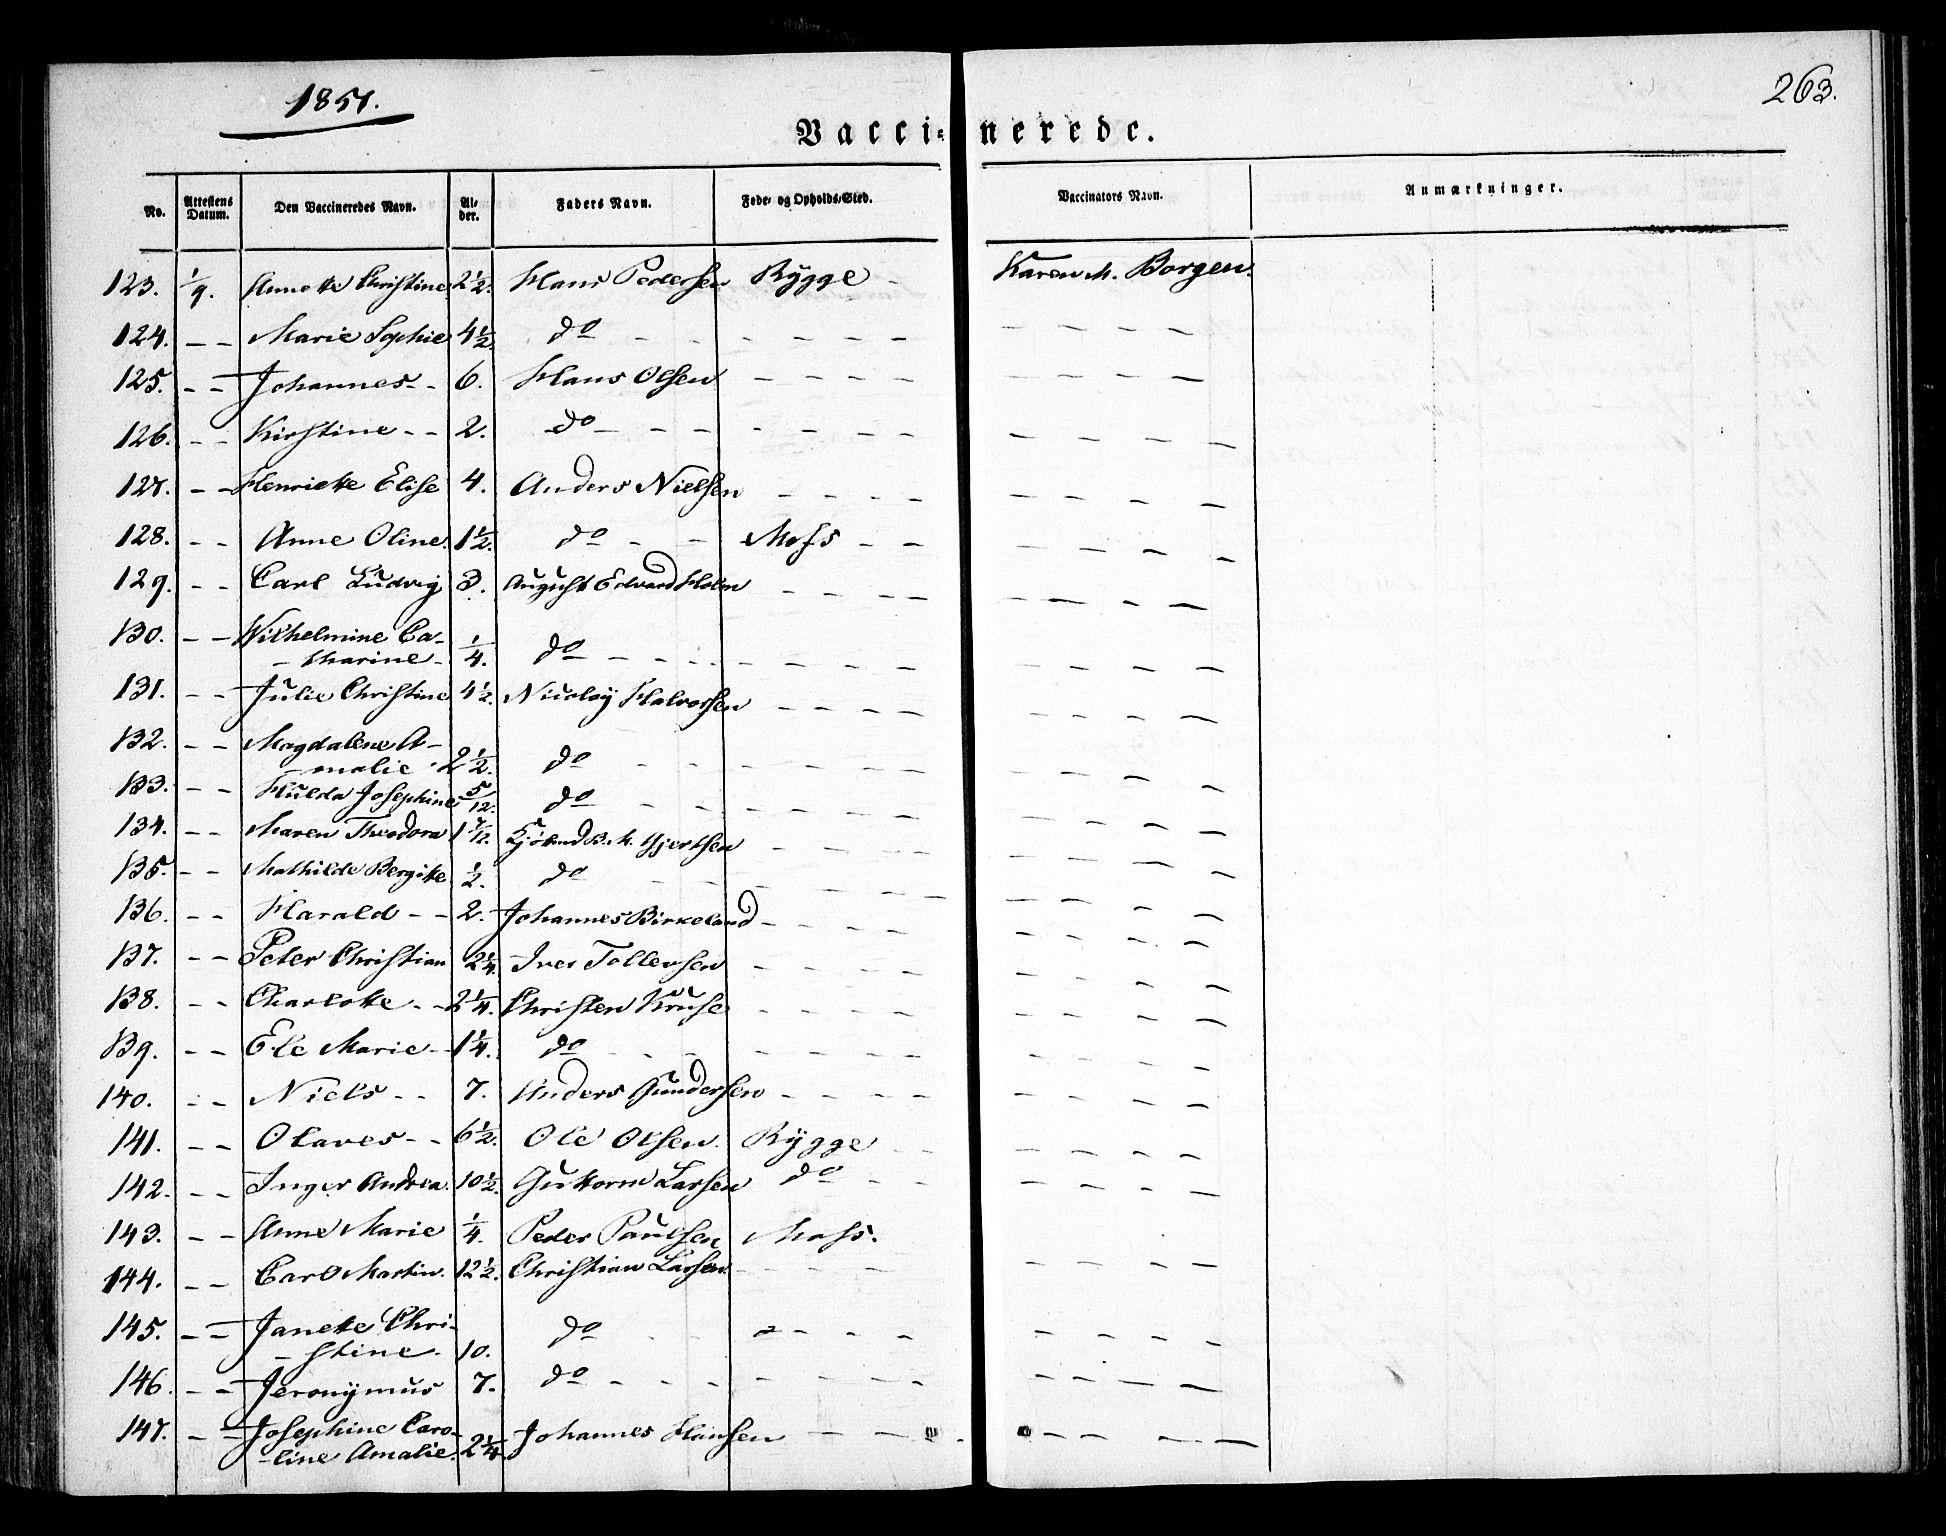 1851.
263.
Vacci- nerede.
No. Attestens Datum. Den Vaccineredes Navn. Al- der. Faders Navn. Føde- og Opholds-Sted. Vaccinators Navn. Anmærkninger.
123. 1/9. Annette Christine 2 1/2. Hans Pedersen Rygge - Karen M. Borgen.
124. - - Marie Sophie 4 1/2. do - - - - - - - - - - -
125. - - Johannes - - 6. Hans Olsen - - - - - - - - -
126. - - Kirstine - - 2. do - - - - - - - - - - -
127. - - Henriette Elise 4. Anders Nielsen - - - - - - - -
128. - - Anne Oline. 1 1/2. do - - Moss - - - - - - -
129. - - Carl Ludvig 3. August Edvard Holm - - - - - - - -
130. - - Wilhelmine Ca-
- tharine - 1/4. do - - - - - - - - - - - -
131. - - Julie Christine 4 1/2. Nicolay Halvorsen - - - - - - - -
132. - - Magdalene A-
malie - 2 1/2. do - - - - - - - - - - -
133. - - Hulda Josephine 5/12. do - - - - - - - - - - -
134. - - Maren Theodora 1 7/12. B. M. Gjertsen - - - - - - - -
135. - - Mathilde Bergitte 1/2. do - - - - - - - - - -
136. - - Harald - - 2. Johannes Birkeland - - - - - - - - -
137. - - Peter Christian 2 1/4. Iver Tollevsen - - - - - - - -
138. - - Charlotte - - 2 1/4. Christen Kruse - - - - - - - -
139. - - Ele Marie - 1 1/4. do - - - - - - - - - - -
140. - - Niels - - 7. Anders Gundersen - - - - - - - -
141. - - Olaves - - 6 1/2. Ole Olsen. Rygge - - - - - -
142. - - Inger Andrea. 10 1/2. Guttorm Larsen do - - - - - -
143. - - Anne Marie 1/4. Peder Paulsen Moss.
144. - - Carl Martin. 12 1/2. Christian Larsen. - - - - - - - - -
145. - - Janette Chri-
- stine. 10. do - - - - - - - - - - -
146. - - Jeronymus 7. do - - - - - - - - - - - -
147. - - Josephine Caro-
-line Amalie. 2 1/4. Johannes Hansen - - - - - - - -